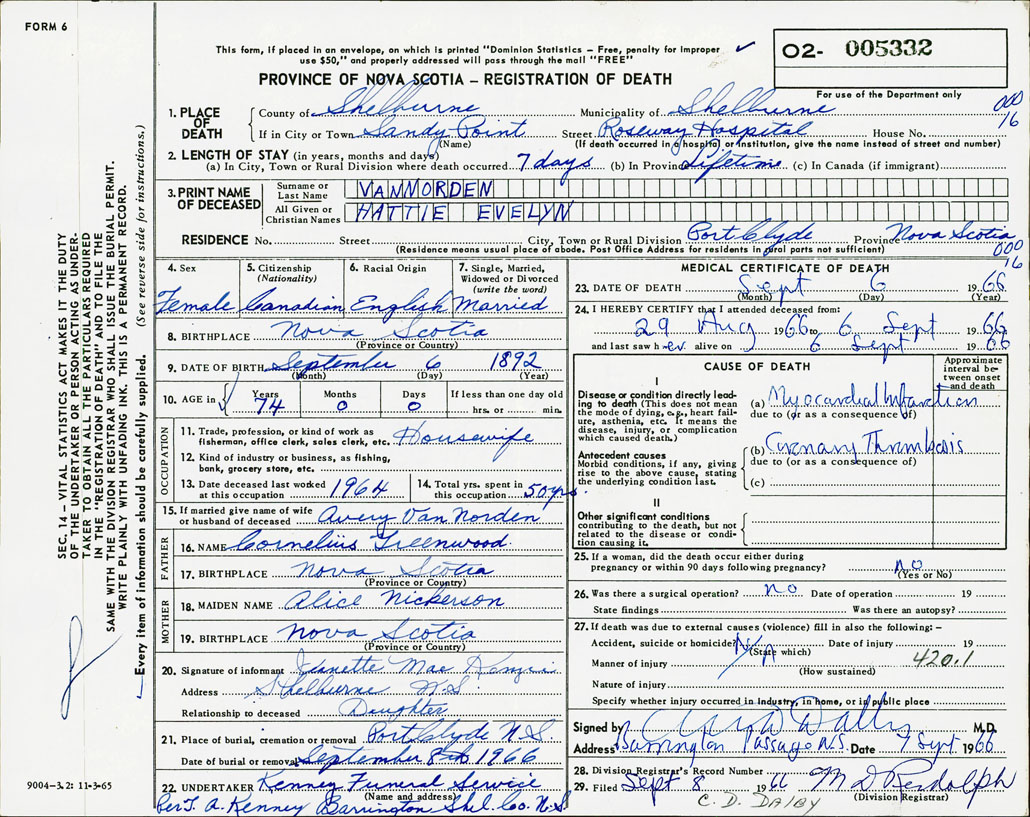 FORM 6
This form, if placed in an envelope, on which is printed "Dominion Statistics – Free, penalty for improper
use $50," and properly addressed will pass through the mail "FREE"
O2- 005332
PROVINCE OF NOVA SCOTIA – REGISTRATION OF DEATH
For use of the Department only
000
16
1. PLACE OF DEATH
County of Shelburne Municipality of Shelburne
If in City or Town Sandy Point Street Roseway Hospital House No.
(Name) (If death occurred in a hospital or institution, give the name instead of street and number)
2. LENGTH OF STAY (in years, months and days)
(a) In City, Town or Rural Division where death occurred 7 days (b) In Province Lifetime (c) In Canada (if immigrant)
3. PRINT NAME OF DECEASED
Surname or Last Name VANNORDEN
All Given or Christian Names HATTIE EVELYN
RESIDENCE No. Street City, Town or Rural Division Port Clyde Province Nova Scotia
(Residence means usual place of abode. Post Office Address for residents in rural parts not sufficient)
000
16
4. Sex 5. Citizenship (Nationality) 6. Racial Origin 7. Single, Married, Widowed or Divorced (write the word)
Female Canadian English Married
8. BIRTHPLACE Nova Scotia
(Province or Country)
9. DATE OF BIRTH September 6 1892
(Month) (Day) (Year)
10. AGE in Years Months Days If less than one day old
74 0 0 hrs. or min.
OCCUPATION
11. Trade, profession or kind of work as fisherman, office clerk, sales clerk, etc. Housewife
12. Kind of industry or business, as fishing, bank, grocery store, etc.
13. Date deceased last worked at this occupation 1964
14. Total yrs. spent in this occupation 50 yrs.
15. If married give name of wife or husband of deceased Avery Van Norden
FATHER
16. NAME Cornelius Greenwood
17. BIRTHPLACE Nova Scotia
(Province or Country)
MOTHER
18. MAIDEN NAME Alice Nickerson
19. BIRTHPLACE Nova Scotia
(Province or Country)
20. Signature of informant Jeanette Mae
Address Shelburne N.S.
Relationship to deceased Daughter
21. Place of burial, cremation or removal Port Clyde N.S.
Date of burial or removal September 8th 1966
22. UNDERTAKER Kenney Funeral Service
(Name and address)
Per T. A. Kenney Barrington Shel. Co. N.S
MEDICAL CERTIFICATE OF DEATH
23. DATE OF DEATH Sept 6 1966
(Month) (Day) (Year)
24. I HEREBY CERTIFY that I attended deceased from:
29 Aug 1966 to 6 Sept 1966
and last saw her alive on 6 Sept 1966
CAUSE OF DEATH
Approximate interval between onset and death
I
Disease or condition directly leading to death (This does not mean the mode of dying, e.g., heart failure, asthenia, etc. It means the disease, injury, or complication which caused death.)
(a) Myocardial Infarction
due to (or as a consequence of)
Antecedent causes
Morbid conditions, if any, giving rise to the above cause, stating the underlying condition last.
(b) Coronary Thrombosis
due to (or as a consequence of)
(c)
II
Other significant conditions
contributing to the death, but not related to the disease or condition causing it.
25. If a woman, did the death occur either during pregnancy or within 90 days following pregnancy? no
(Yes or No)
26. Was there a surgical operation? no Date of operation 19
State findings Was there an autopsy?
27. If death was due to external causes (violence) fill in also the following: –
Accident, suicide or homicide? Date of injury 19
(State which)
Manner of injury 420.1
(How sustained)
Nature of injury
Specify whether injury occurred in industry, in home, or in public place
Signed by M.D.
Address Barrington Passage N.S. Date 7 Sept 1966
28. Division Registrar's Record Number
29. Filed Sept 8 1966 M D Rudolph
(Division Registrar)
C. D. DALBY
SEC. 14 – VITAL STATISTICS ACT MAKES IT THE DUTY
OF THE UNDERTAKER OR PERSON ACTING AS UNDER-
TAKER TO OBTAIN ALL THE PARTICULARS REQUIRED
IN THE "REGISTRATION OF DEATH" AND TO FILE THE
SAME WITH THE DIVISION REGISTRAR WHO SHALL ISSUE THE BURIAL PERMIT.
WRITE PLAINLY WITH UNFADING INK. THIS IS A PERMANENT RECORD.
Every item of information should be carefully supplied. (See reverse side for instructions.)
9004–3.2: 11-3-65